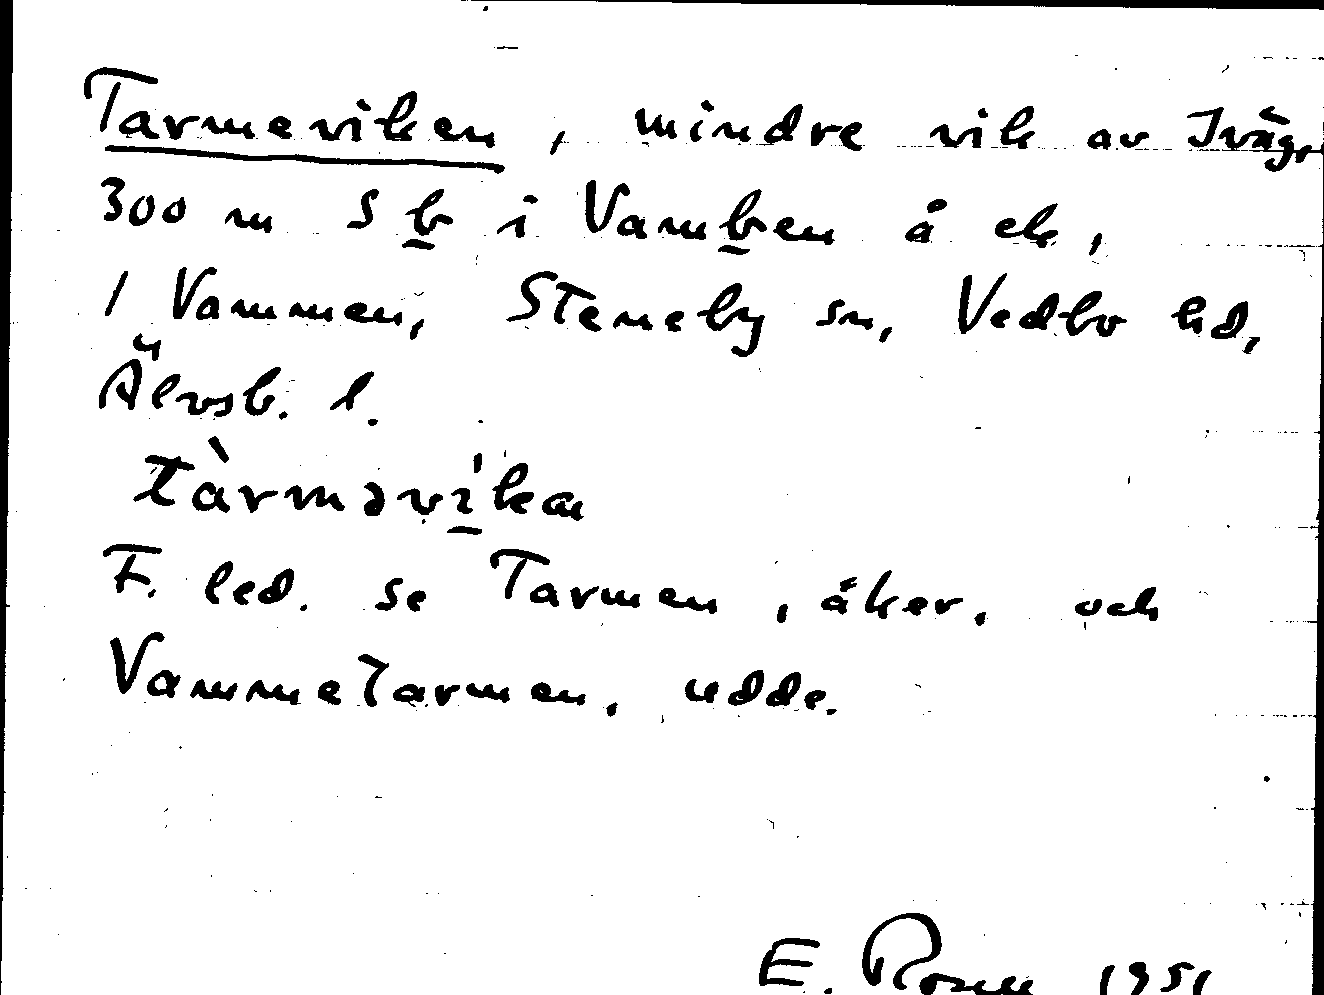 Tarmeviken, mindre vik av Iväg,
300 m S b i Vamben å ek,
1 Vammen, Steneby sn, Vedbo hd,
Älvsb. l.
tàrməvi̱ka
F. led. se Tarmen, åker, och
Vammetarmen, udde.
E. 1951